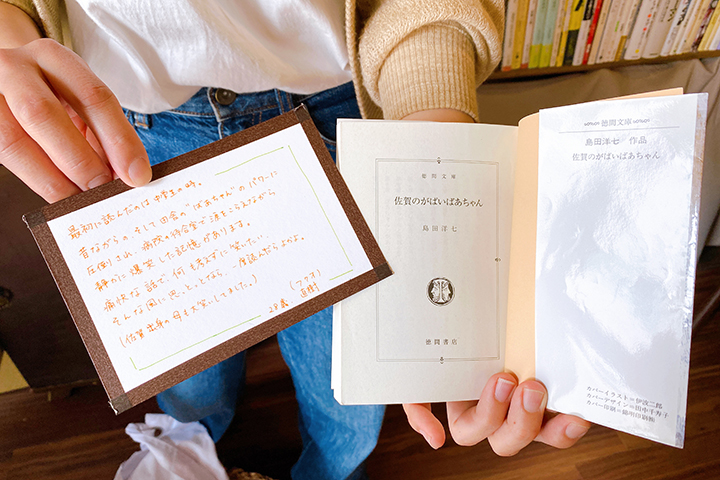 最初に読んだのは中学生の時。
昔ながらの、そして田舎の"ばあちゃん"のパワーに
圧倒され、病院の待合室で涙をこらえながら
静かに爆笑した記憶があります。
痛快な話で、何も考えずに笑いたい
そんな風に思っとっとなら、一度読んだらよかよ。
(佐賀出身の母も大笑いしてました。)
28歳・直樹
徳間文庫
佐賀のがばいばあちゃん
島田洋七
徳間書店
徳間文庫
島田洋七 作品
佐賀のがばいばあちゃん
カバーイラスト=伊波二郎
カバーデザイン=田中千秀子
カバー印刷=錦明印刷㈱